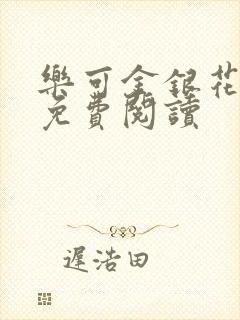 樂可金銀花
免費閱讀
遲浩田